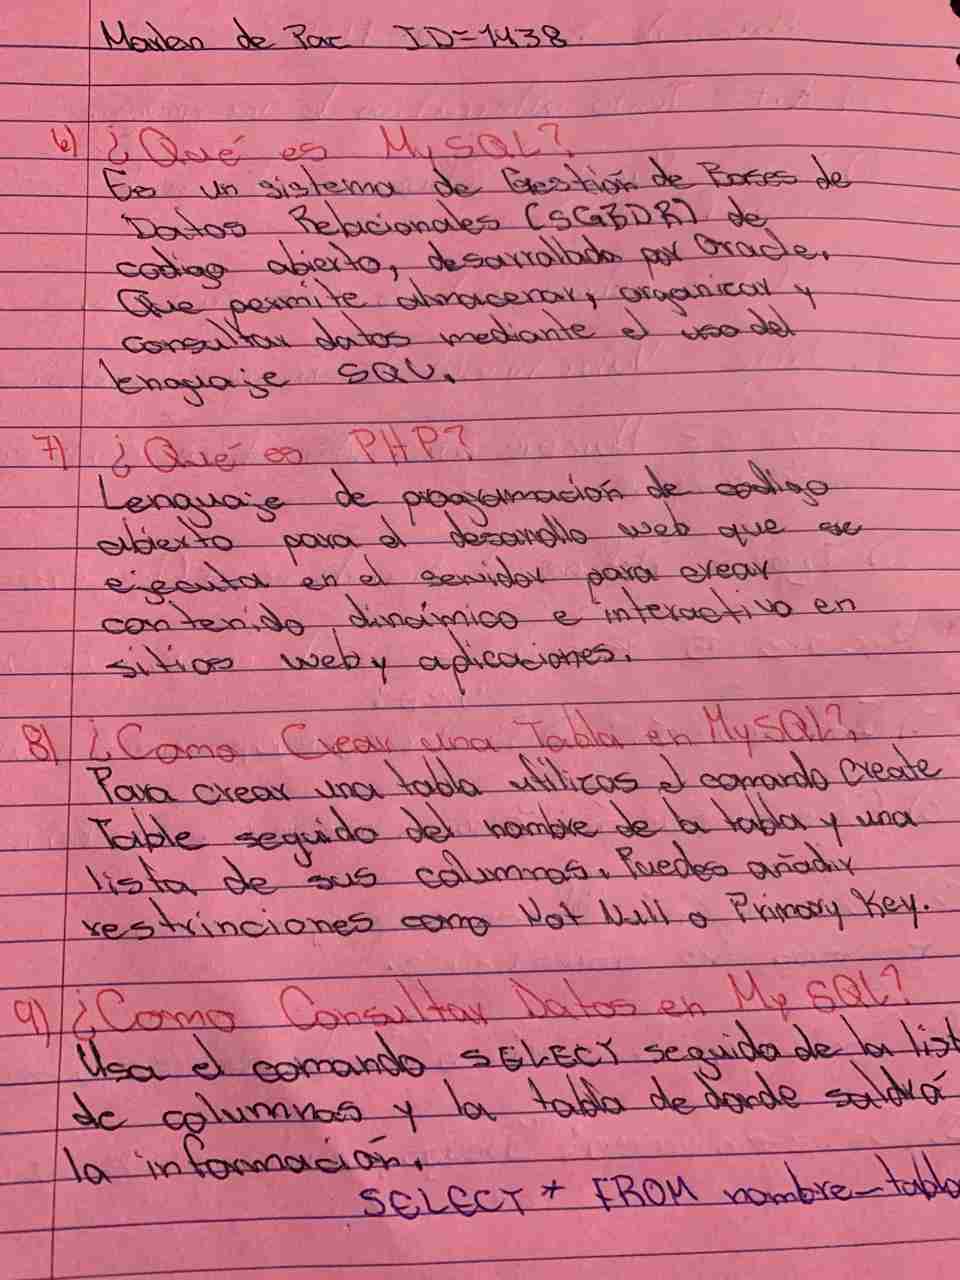 Marlen de Paz ID=1438
6) ¿Qué es MySQL?
Es un sistema de Gestión de Bases de
Datos Relacionales (SGBDR) de
codigo abierto, desarrollado por Oracle.
Que permite almacenar, organizar y
consultar datos mediante el uso del
lenguaje SQL.
7) ¿Qué es PHP?
Lenguaje de programación de codigo
abierto para el desarrollo web que se
ejecuta en el servidor para crear
contenido dinámico e interactivo en
sitios web y aplicaciones.
8) ¿Como Crear una Tabla en MySQL?
Para crear una tabla utilizas el comando Create
Table seguido del nombre de la tabla y una
lista de sus columnas. Puedes añadir
restrinciones como Not Null o Primary Key.
9) ¿Como Consultar Datos en MySQL?
Usa el comando SELECT seguido de la list
de columnas y la tabla de donde saldrá
la información.
SELECT * FROM nombre_tabla